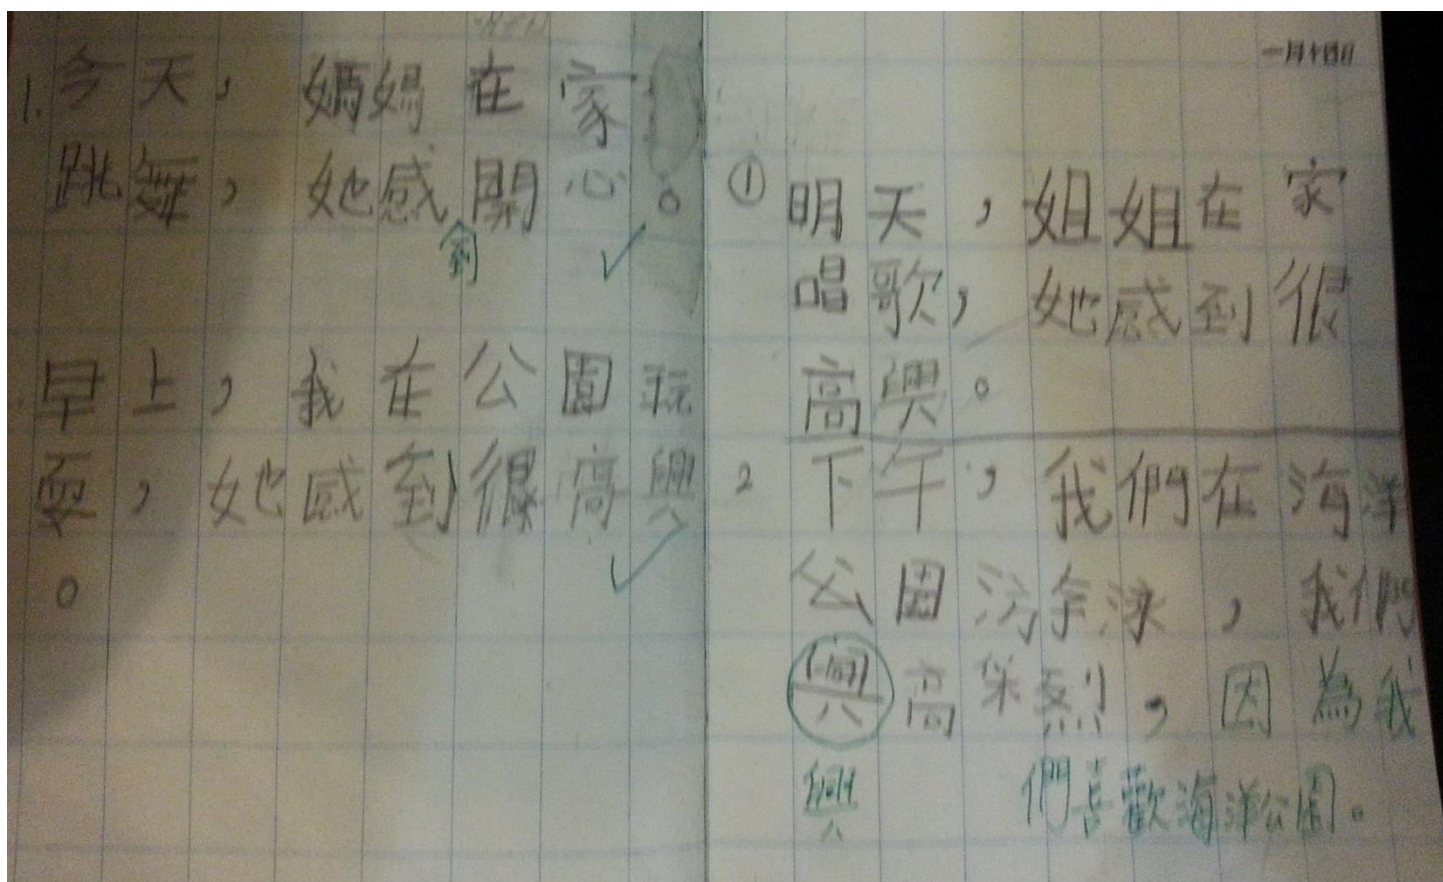 1. 今天，媽媽在家
跳舞，她感開心。
到
早上，我在公園玩
耍，她感到很高興
。
一月十四日
① 明天，姐姐在家
唱歌，她感到很
高興。
2 下午，我們在海洋
公園游泳，我們
興高采烈，因為我
興 們喜歡海洋公園。